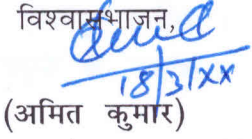 विश्वासभाजन,
18/3/XX
(अमित कुमार)